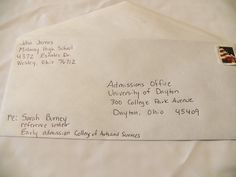 John James
Midway High School
4372 Rd
Wesley, Ohio 76712
Admissions Office
University of Dayton
300 College Park Avenue
Dayton, Ohio 45409
re: Sarah Burney
reference under
Early admission College of Arts and Sciences